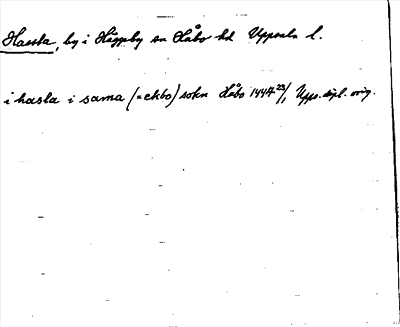 Hassla, by i Häggeby sn Håbo hd Uppsala l.
i hasla i sama (= ekbo) sokn Håbo 1447 23/1 Upps. dipl. orig.